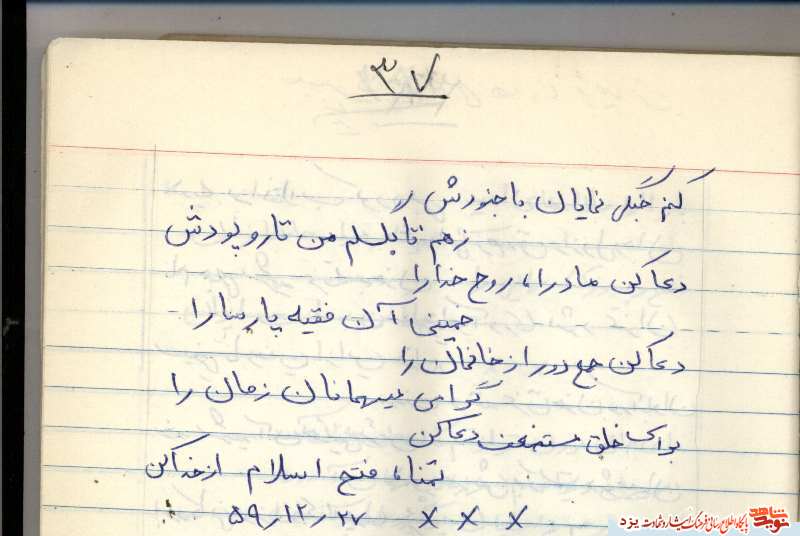 ۳۷
کنم جنگی نمایان با جنودش
زهم تا بگسلم من تار و پودش
دعا کن مادرا، روح خدا را
خمینی آن فقیه پارسا را
دعا کن جمع دور از خانمان را
گرامی میهمانان زمان را
برای خلق مستضعف دعا کن
تمناء فتح اسلام از خدا کن
× × × ۵۹/۱۲/۲۷
نوید شاهد پایگاه اطلاع رسانی فرهنگ ایثار و شهادت یزد